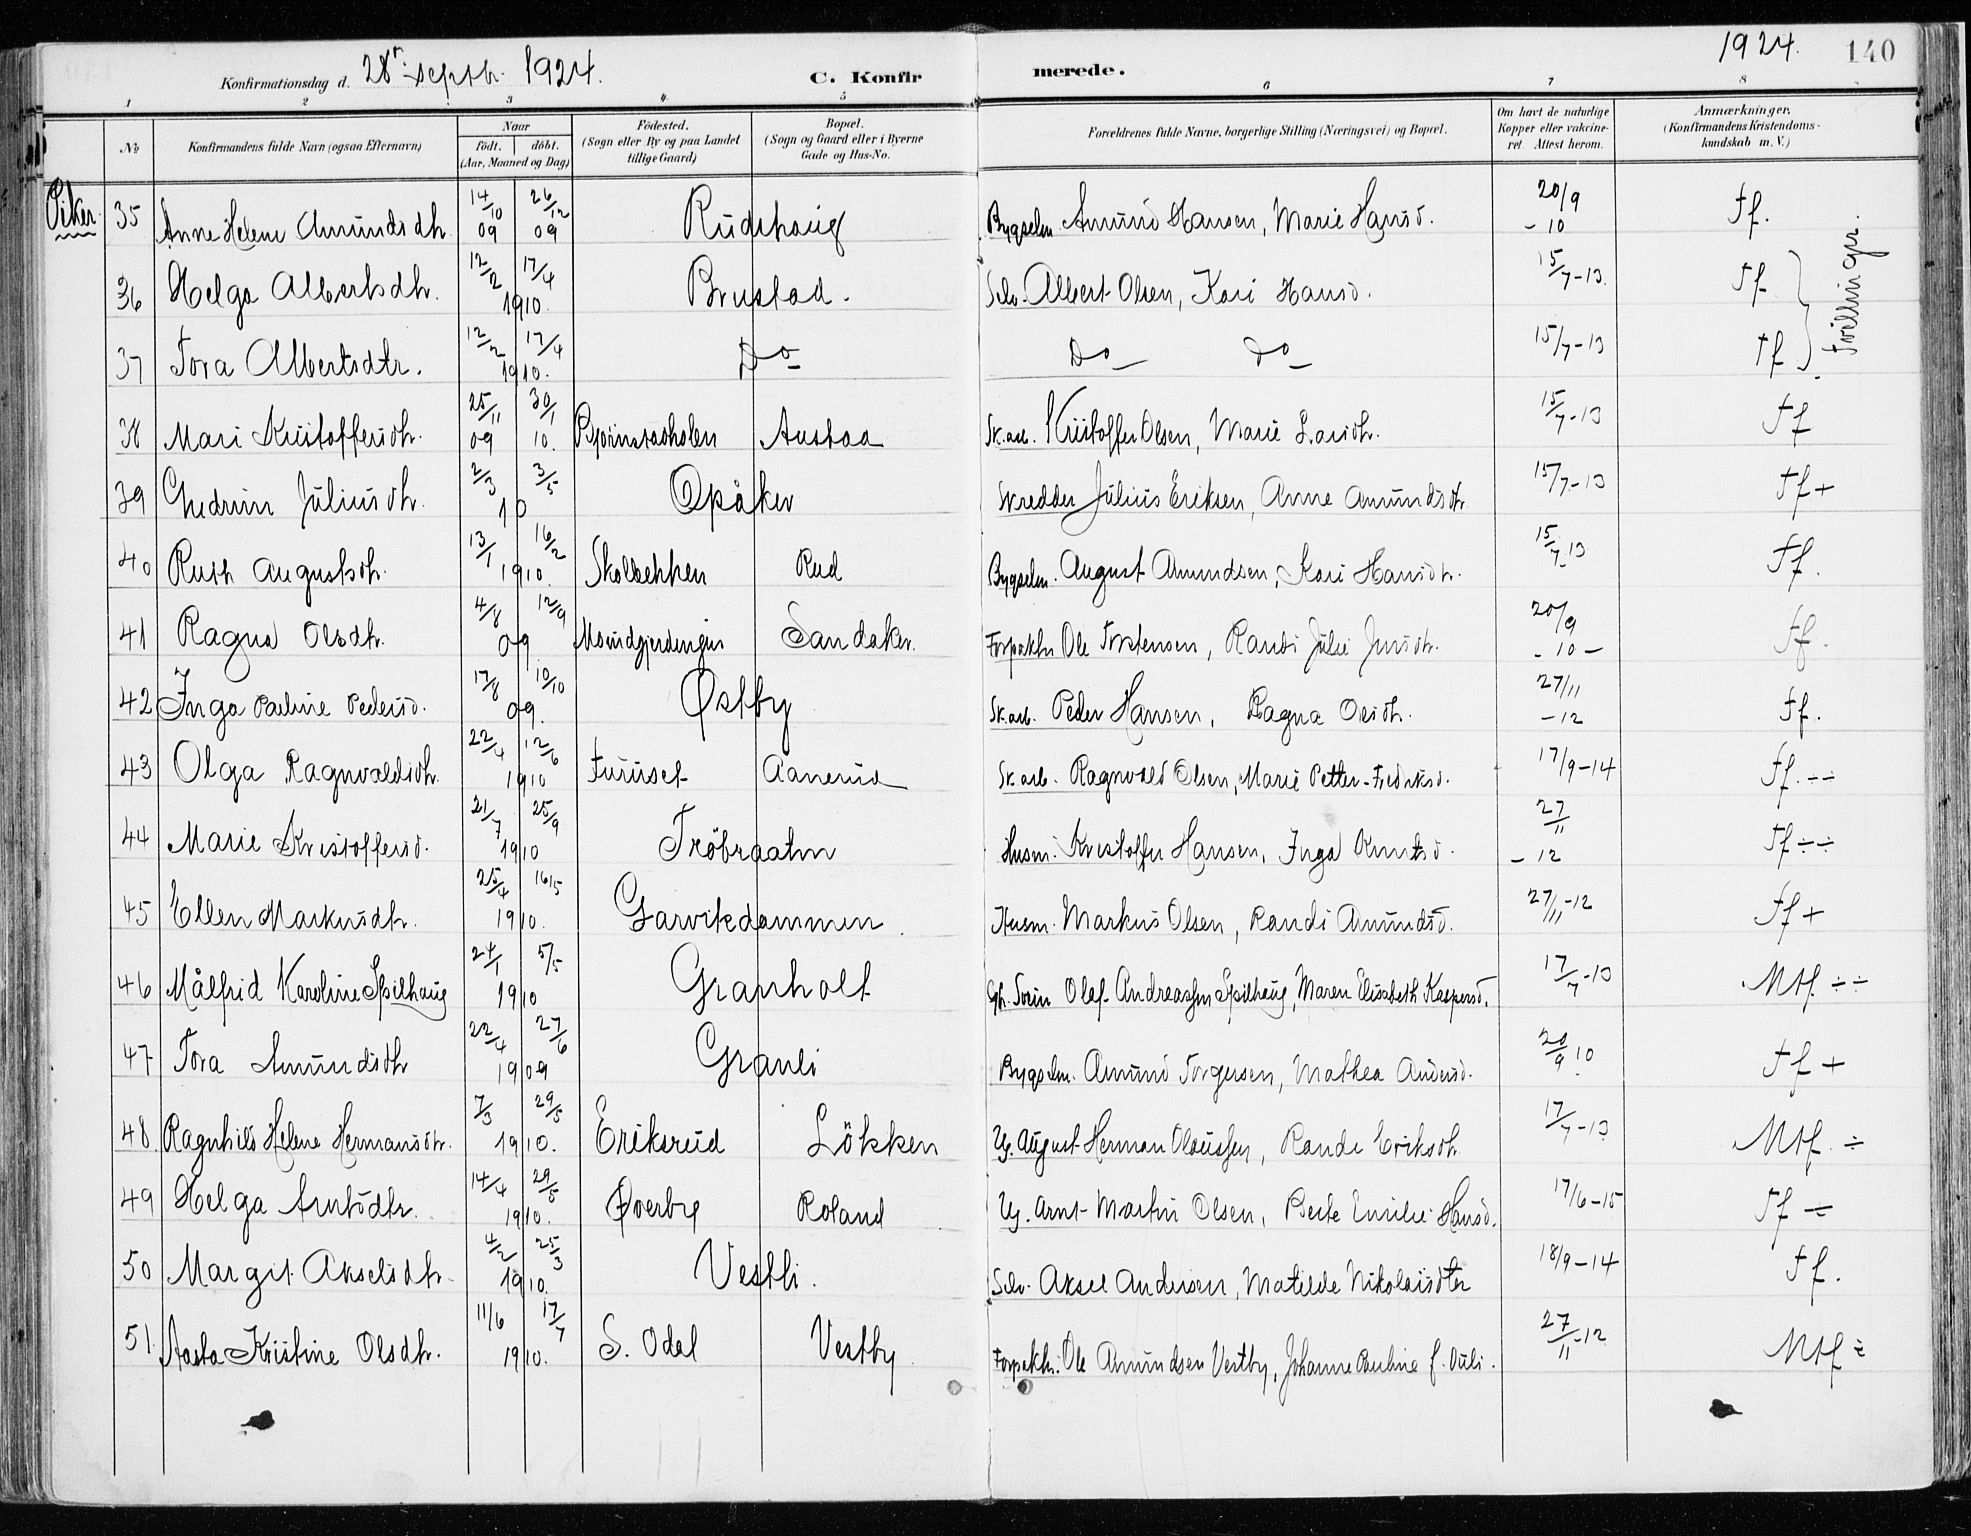 Konfirmationsdag d. 28de septbr. 1924. C. Konfirmerede. 1924. 140
1 2 3 4 5 6 7 8
No Konfirmandens fulde Navn (ogsaa Efternavn) Naar født. døbt. (Aar, Maaned og Dag) Födested. (Sogn eller By og paa Landet tillige Gaard) Bopæl. (Sogn og Gaard eller i Byerne Gade og Hus-No. Forældrenes fulde Navne, borgerlige Stilling (Næringsvei) og Bopæl. Om havt de naturlige Kopper eller vakcineret. Attest herom. Anmærkninger. (Konfirmandens Kristendomskundskab m. V.)
Piker.
35 Anne Helene Amundsdtr. 14/10 09 26/12 09 Rudshaug Bygselm. Amund Hansen, Marie Hansd. 20/9 - 10 Tf.
36 Helga Albertsdtr. 12/2 17/4 1910. Brustad. Selv. Albert Olsen, Kari Hansd. 15/7-13. Tf
37 Tora Albertsdtr. 12/2 17/4 1910. Do Do do 15/7-13 Tf
Tvillingpr.
38 Mari Kristoffersdtr. 25/11 09 30/1 10. Austad Sk.arb. Kristoffer Olsen, Marie Larsdtr. 15/7-13 Tf
39 Gudrun Juliusdtr. 2/3 3/5 10 Opåker Skredder Julius Eriksen, Anne Amundsdtr. 15/7-13 Tf +
40 Ruth Augustsdtr. 13/1 16/2 1910. Skolbekken Rud Bygselm. August Amundsen, Kari Hansdtr. 15/7-13 Tf.
41 Ragna Olsdtr. 4/8 12/9 09 Sandaker. Forpakter Ole Torstensen, Randi Julie Jensdtr. 20/9 - 10 - Tf.
42 Inga Pauline Pedersd. 17/8 10/10 09. Østby Sk.arb. Peder Hansen, Ragna Olsdtr. 27/11 - 12 Tf.
43 Olga Ragnvaldsdtr. 22/4 12/6 1910 Furuset Aanerud Sk.arb. Ragnvald Olsen, Marie Petter-Fredriksd. 17/9-14 Tf. ÷÷
44 Marie Kristoffersd. 21/7 25/9 1910 Tröbraaten Husm. Kristoffer Hansen, Inga Knutsd. 27/11 - 12 Tf ÷÷
45 Ellen Markusdtr. 25/4 16/5 1910. Garvikdammen. Husm. Markus Olsen, Randi Amundsd. 27/11-12 Tf +
46 Målfrid Karoline Spilhaug 24/1 5/5 1910 Granholt Olaf Andreassen Spilhaug, Maren Elisabeth Kaspersd. 17/7-13 Mtf. ÷÷
47 Tora Amundsdtr 22/4 27/6 1909 Granli Bygselm. Amund Torgersen, Mathea Andersd. 20/9 10. Tf +
48. Ragnhild Helene Hermansdtr. 7/3 29/5 1910. Eriksrud Lökken Ug. August Herman Olaussen, Randi Eriksdtr. 17/7-13 Mtf. ÷
49 Helga Arntsdtr. 14/4 29/5 1910. Øverby Roland Ug. Arnt Martin Olsen, Berte Emilie Hansd. 17/6-15 Tf ÷
50 Margit Akselsdtr. 4/2 25/3 1910. Vestli. Selv. Aksel Andersen, Matilde Nikolaisdtr 18/9-14 Tf.
51. Aasta Kristine Olsdtr. 11/6 17/7 1910. S. Odal Vestby Forpakter. Ole Amundsen Vestby, Johanne Pauline f. Ouli. 27/11-12. Mtf ÷